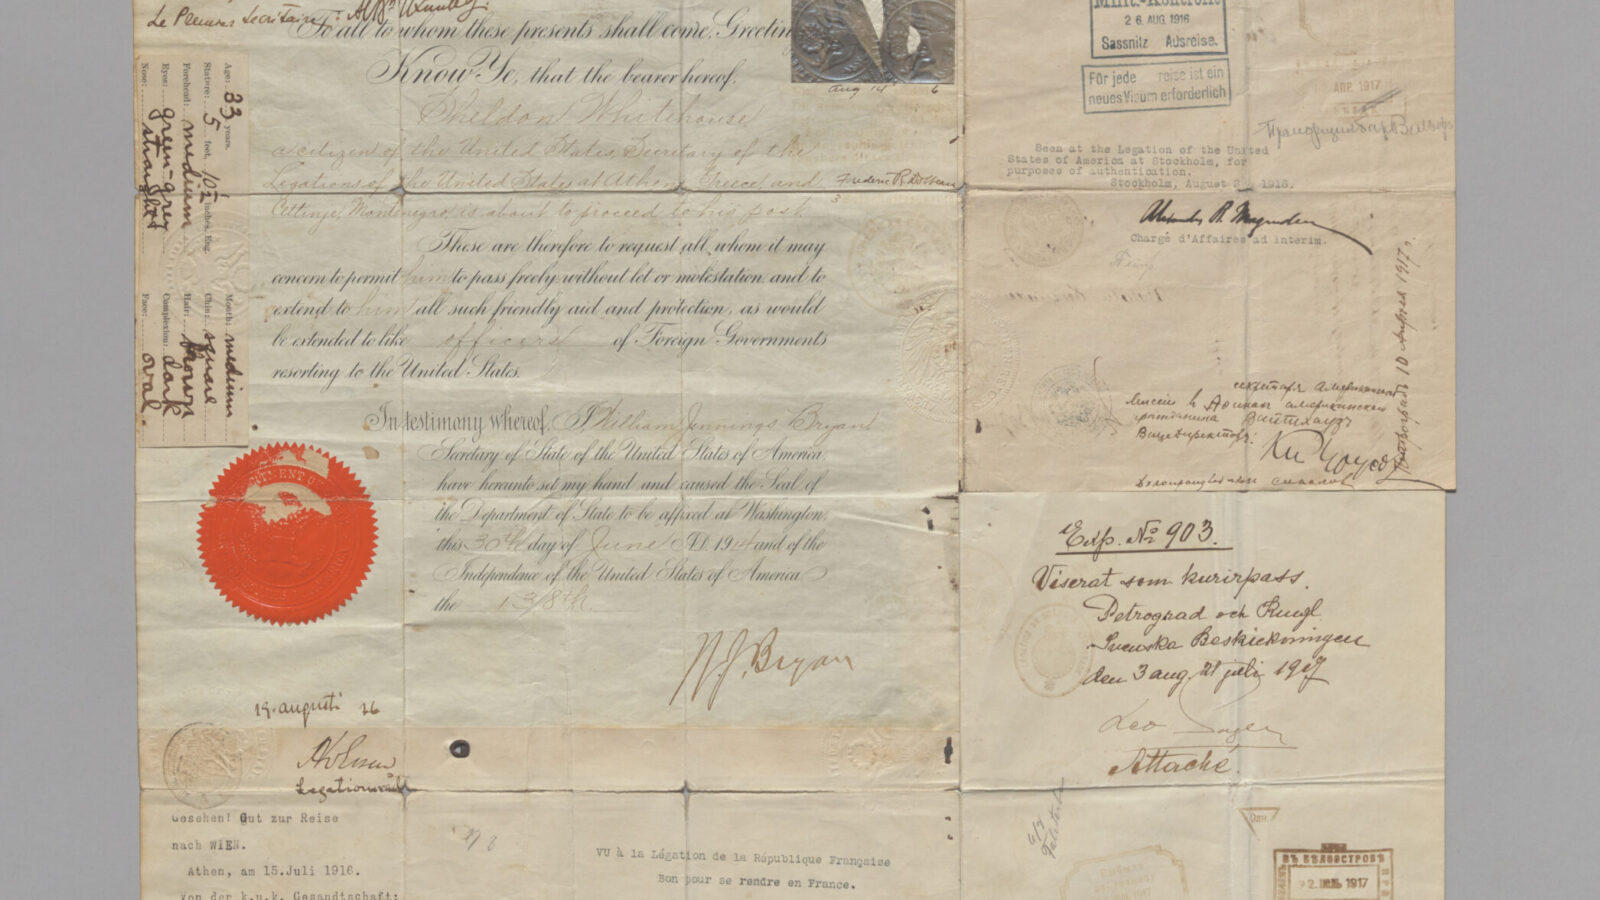 Le Premier Secrétaire:
To all to whom these presents shall come, Greetin
Know Ye, that the bearer hereof,
Sheldon Whitehouse
a citizen of the United States, Secretary of the
Legations of the United States at Athens, Greece, and
Cettinje, Montenegro, is about to proceed to his post.
These are therefore to request all whom it may
concern to permit him to pass freely without let or molestation and to
extend to him all such friendly aid and protection, as would
be extended to like officers of Foreign Governments
resorting to the United States.
In testimony whereof, I William Jennings Bryan
Secretary of State of the United States of America,
have hereunto set my hand and caused the Seal of
the Department of State to be affixed at Washington,
this 30th day of June A.D. 1914 and of the
Independence of the United States of America
the 138th.
W. J. Bryan
Age: 33 years.
Stature: 5 feet, 10½ inches, Eng.
Forehead: medium
Eyes: green-grey
Nose: straight
Mouth: medium
Chin: square
Hair: brown
Complexion: dark
Face: oval
Aug 14 6
Frederic R. Dolbeare
19. augusti 16
Gesehen! Gut zur Reise
nach WIEN.
Athen, am 15.Juli 1916.
von der k.u.k. Gesandtschaft:
VU à la Légation de la République Française
Bon pour se rendre en France.
26. AUG. 1916
Sassnitz Ausreise.
Für jede reise ist ein
neues Visum erforderlich
APR. 1917
Seen at the Legation of the United
States of America at Stockholm, for
purposes of authentication.
Stockholm, August 2 , 1916.
Alexander R. Magruder
Chargé d'Affaires ad interim.
секретаря Американской
миссии в Афинах американского
гражданина Вайтхауз
Вицедиректор:
Делопроизводитель
Exp. No 903.
Viserat som kurirpass.
Petrograd och Kungl.
Svenska Beskickningen
den 3 aug. 21 juli 1917
Attaché.
ВЪ БѢЛООСТРОВѢ
2. 1917